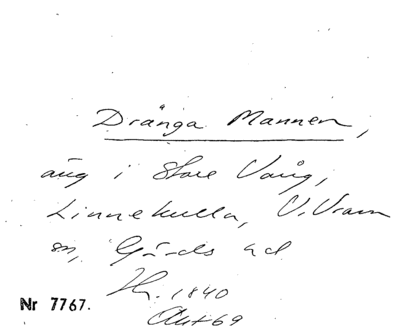 Dränga Mannen,
äng i Store Vång,
Linnekulla, V. Vram
sn, Gärds hd
Hr. 1840
Akt 69
Nr 7767.